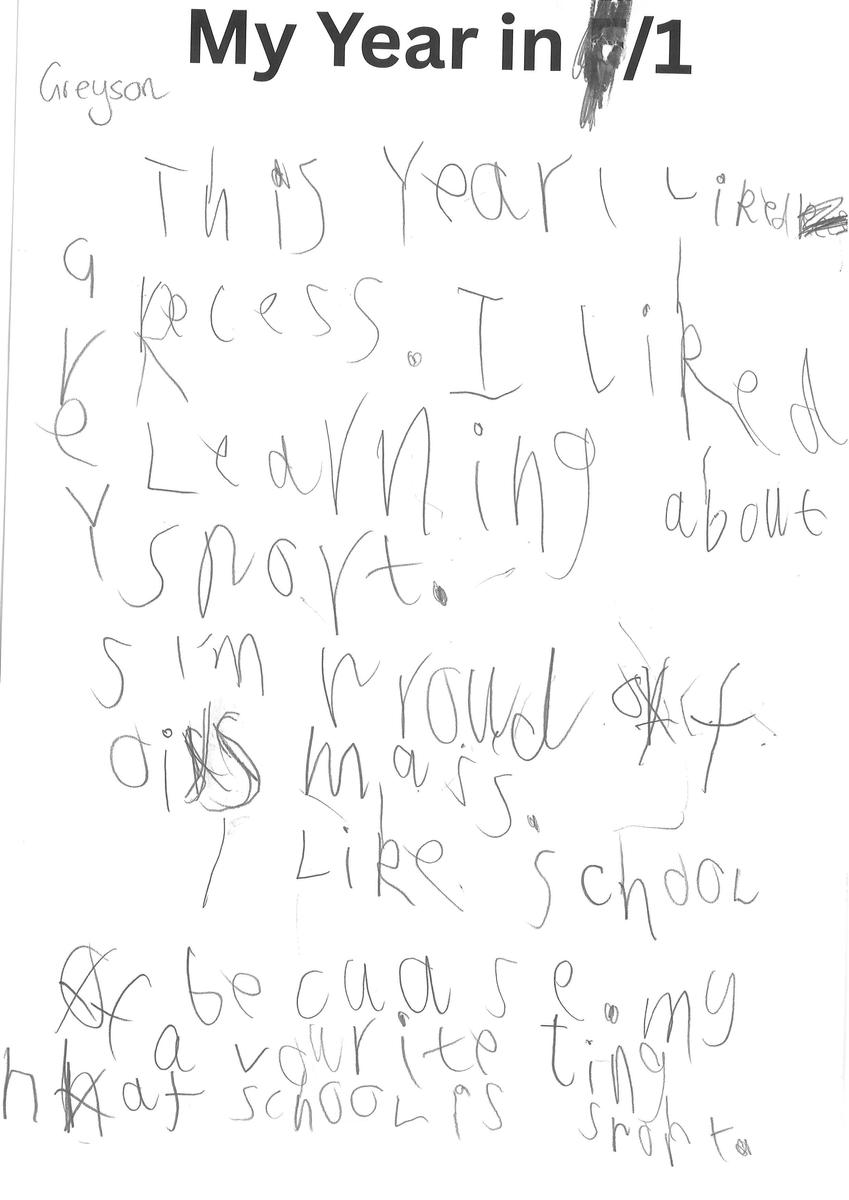 My Year in /1
Greyson
This Year I Liked
Recess. I Liked
Learning about
sport.
Greys
I'm Proud of
mass.
I Like School
becuase. my
favourite ting
at school is sport.